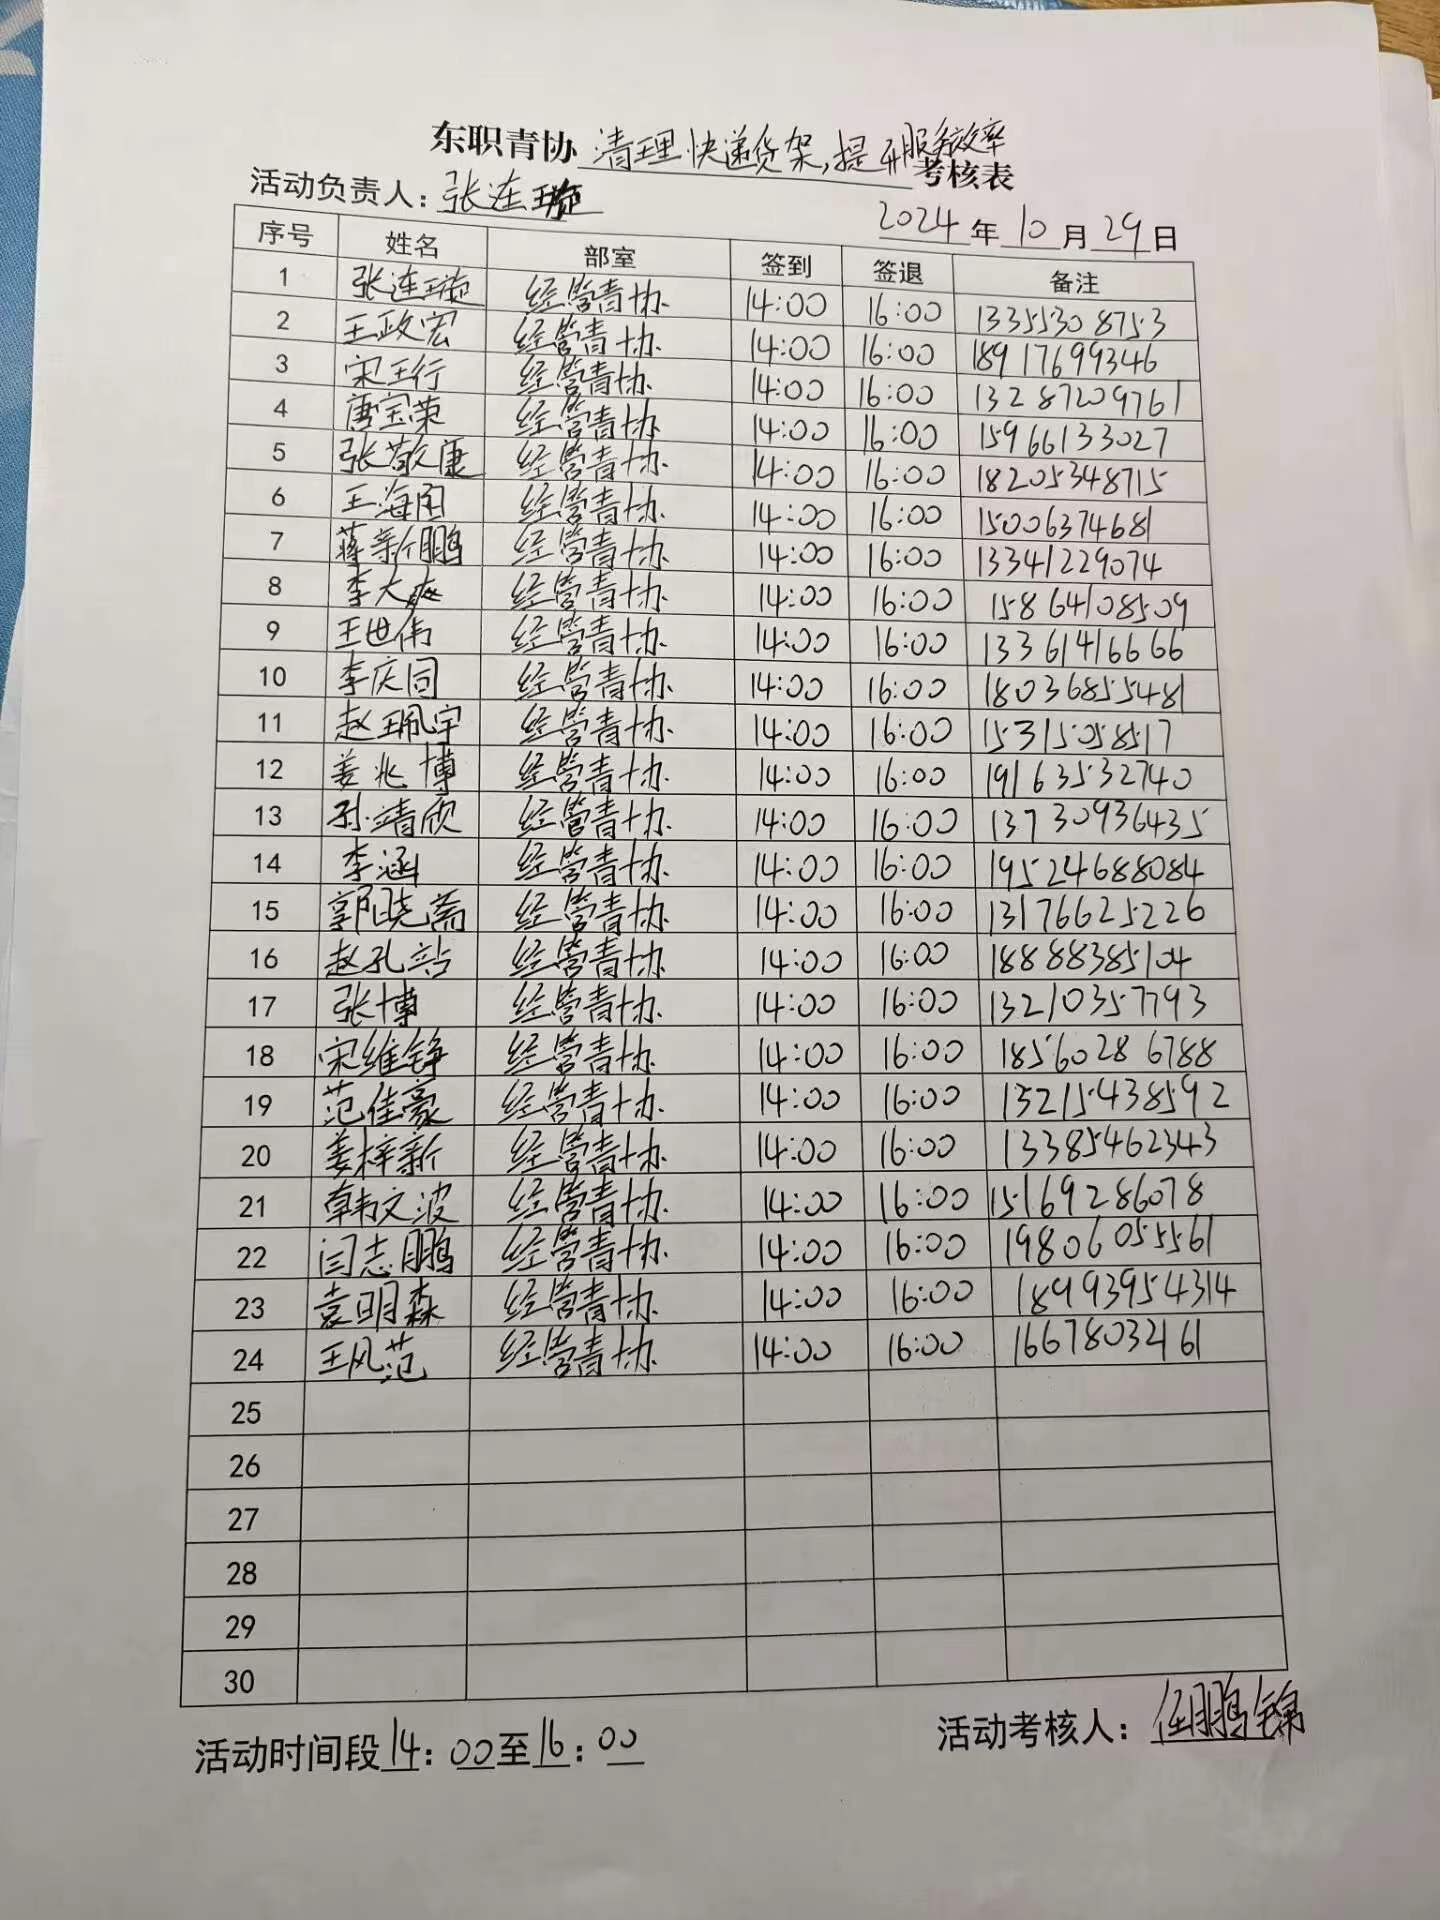 东职青协 清理快递货架,提升服务效率 考核表
活动负责人: 张连璇
2024 年 10 月 29 日
序号 姓名 部室 签到 签退 备注
1 张连璇 经管青协 14:00 16:00 13355308753
2 王政宏 经管青协 14:00 16:00 18917699346
3 宋玉行 经管青协 14:00 16:00 13287209761
4 唐宝荣 经管青协 14:00 16:00 15966133027
5 张敬康 经管青协 14:00 16:00 18205348715
6 王海 经管青协 14:00 16:00 15006374681
7 蒋新鹏 经管青协 14:00 16:00 13341229074
8 李大爽 经管青协 14:00 16:00 15864108509
9 王世伟 经管青协 14:00 16:00 13361416666
10 李庆同 经管青协 14:00 16:00 18036855481
11 赵珮宇 经管青协 14:00 16:00 15315058517
12 姜兆博 经管青协 14:00 16:00 19163532740
13 孙靖欣 经管青协 14:00 16:00 13730936435
14 李涵 经管青协 14:00 16:00 19524688084
15 郭晓 经管青协 14:00 16:00 13176625226
16 赵孔站 经管青协 14:00 16:00 18888385104
17 张博 经管青协 14:00 16:00 13210357793
18 宋维铮 经管青协 14:00 16:00 18560286788
19 范佳豪 经管青协 14:00 16:00 13215438592
20 姜梓新 经管青协 14:00 16:00 13385462343
21 韩文波 经管青协 14:00 16:00 15169286078
22 闫志鹏 经管青协 14:00 16:00 19806055561
23 袁明森 经管青协 14:00 16:00 18993954314
24 王风范 经管青协 14:00 16:00 16678032161
25
26
27
28
29
30
活动时间段 14:00至16:00
活动考核人: 任鹏锦